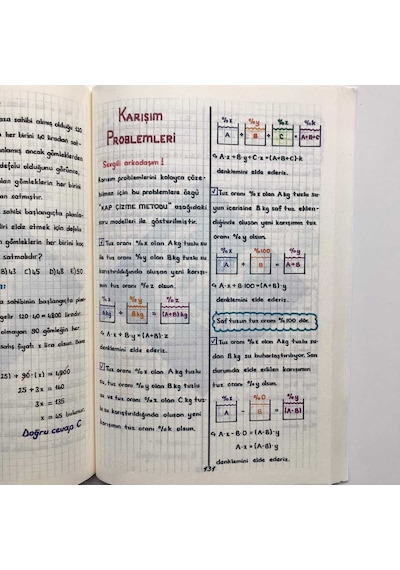 aza sahibi almış olduğu 120
n her birini 40 liradan sat-
anmış ancak gömleklerden
defolu olduğunu görünce,
gömleklerin her birini
an satmıştır.
sahibi başlangıçta planla-
rı elde etmek için defolu
n gömleklerin her birini kaç
satmalıdır?
B) 43 C) 45 D) 48 E) 50
sahibinin başlangıçta pla-
gelir 120·40 = 4800 liradır.
olmayan 90 gömleğin her
ış fiyatı x lira olsun.
25) + 90·(x) = 4800
25 + 3x = 160
3x = 135
x = 45 bulunur.
Doğru cevap C
KARIŞIM
PROBLEMLERİ
Sevgili arkadaşım!
Karışım problemlerini kolayca çöze-
bilmen için bu problemlere özgü
"KAP ÇİZME METODU" aşağıdaki
soru modelleri ile gösterilmiştir.
Tuz oranı %x olan A kg tuzlu su
ile tuz oranı %y olan B kg tuzlu
su karıştırıldığında oluşan yeni karışı-
mın tuz oranı %z olsun.
%x %y %z
A kg + B kg = (A+B) kg
A·x + B·y = (A+B)·z
denklemini elde ederiz.
Tuz oranı %x olan A kg tuzlu
su, tuz oranı %y olan B kg tuzlu
su ve tuz oranı %z olan C kg tuz-
lu su karıştırıldığında oluşan yeni
karışımın tuz oranı %k olsun.
%x %y %z %k
A + B + C = A+B+C
A·x + B·y + C·z = (A+B+C)·k
denklemini elde ederiz.
Tuz oranı %x olan A kg tuzlu su-
yun içerisine B kg saf tuz eklen-
diğinde oluşan yeni karışımın tuz
oranı %y olsun.
%x %100 %y
A + B = A+B
A·x + B·100 = (A+B)·y
denklemini elde ederiz.
Saf tuzun tuz oranı %100 dür.
Tuz oranı %x olan A kg tuzlu su-
dan B kg su buharlaştırılıyor. Son
durumda elde edilen karışımın
tuz oranı %y olsun.
%x %0 %y
A - B = (A-B)
A·x - B·0 = (A-B)·y
A·x = (A-B)·y
denklemini elde ederiz.
131